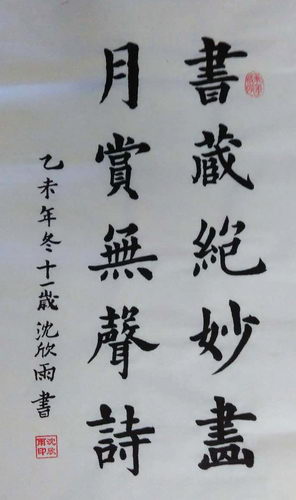 書藏絕妙畫
月賞無聲詩
乙未年冬十一歲沈欣雨書
沈欣雨印